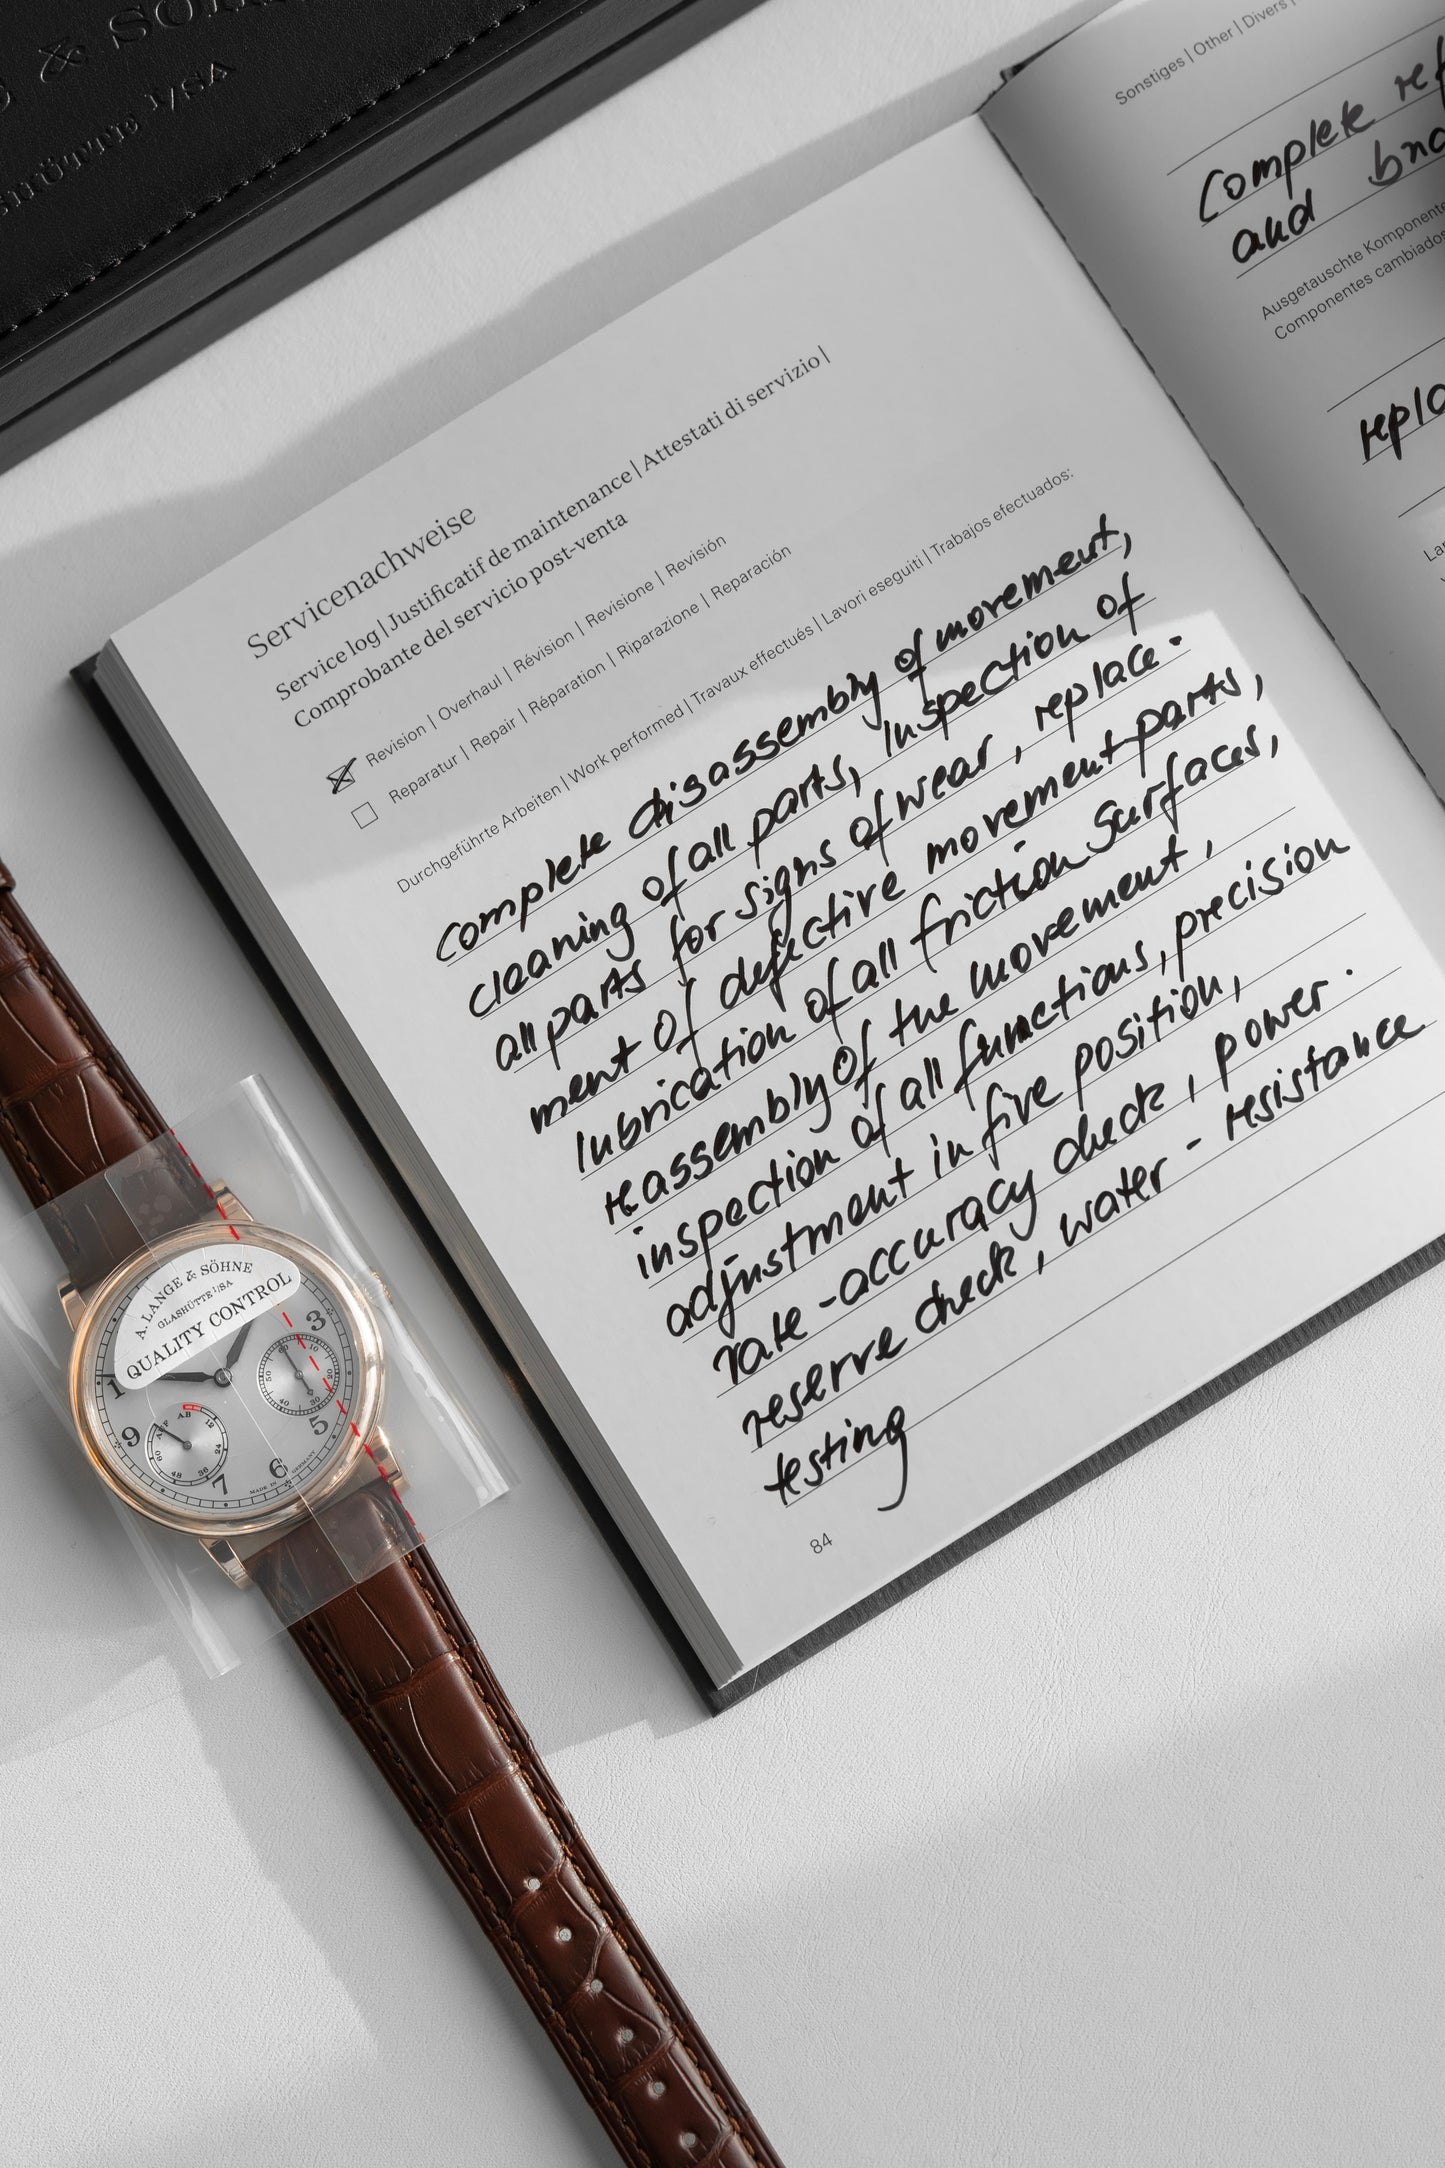 & SÖ
HÜTTE I/SA
Servicenachweise
Service log | Justificatif de maintenance | Attestati di servizio |
Comprobante del servicio post-venta
Revision | Overhaul | Révision | Revisione | Revisión
Reparatur | Repair | Réparation | Riparazione | Reparación
Durchgeführte Arbeiten | Work performed | Travaux effectués | Lavori eseguiti | Trabajos efectuados:
complete disassembly of movement,
cleaning of all parts, inspection of
all parts for signs of wear, replace-
ment of defective movement parts,
lubrication of all friction surfaces,
reassembly of the movement,
inspection of all functions, precision
adjustment in five position,
rate-accuracy check, power-
reserve check, water-resistance
testing
84
Sonstiges | Other | Divers |
Complete
and
Ausgetauschte Komponente
Componentes cambiados
A. LANGE & SÖHNE
GLASHÜTTE I/SA
QUALITY CONTROL
3
5
6
7
9
1
60
10
20
30
40
50
AUF
AB
12
24
36
48
60
MADE IN GERMANY